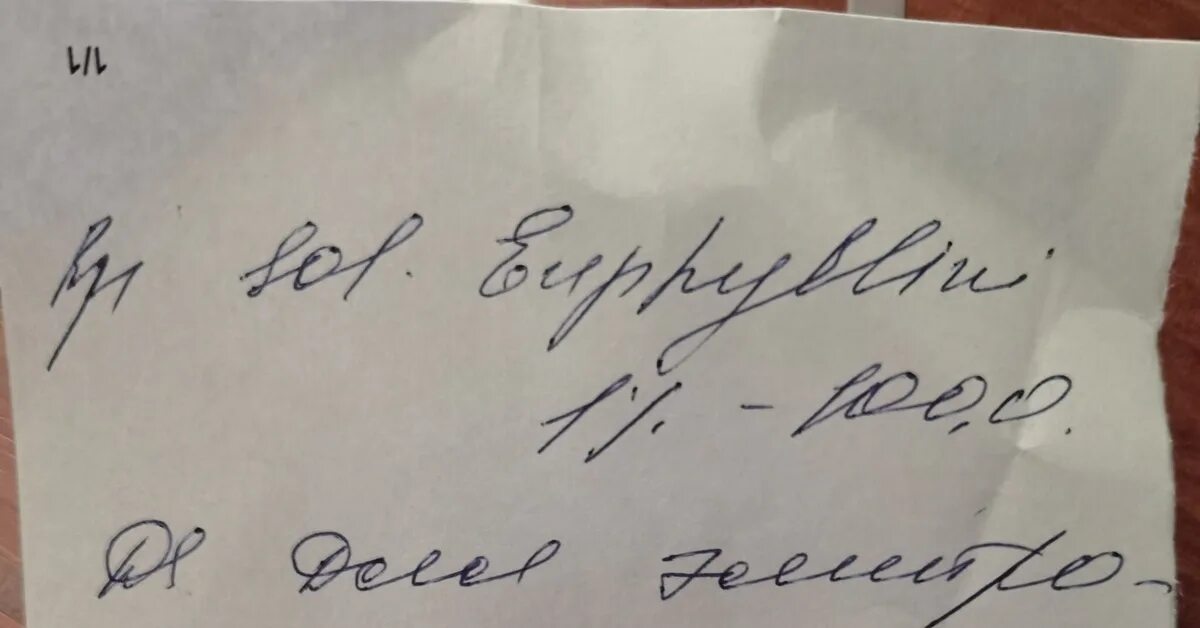 1/1
Rp Sol. Euphyllini
1% - 100,0.
DS Для электро-